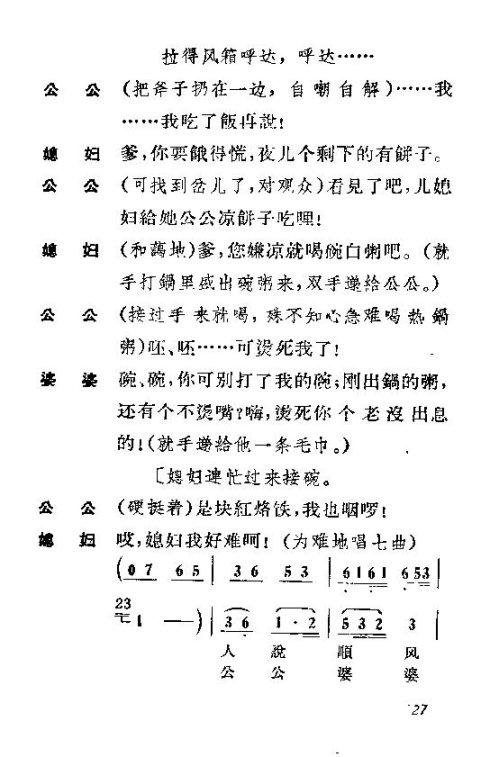 拉得风箱呼达，呼达……
公　公　（把斧子扔在一边，自嘲自解）……我
……我吃了飯再說！
媳　妇　爹，你要餓得慌，夜儿个剩下的有餅子。
公　公　（可找到岔儿了，对观众）看見了吧，儿媳
妇給她公公凉餅子吃哩！
媳　妇　（和藹地）爹，您嫌凉就喝碗白粥吧。（就
手打鍋里盛出碗粥来，双手递給公公。）
公　公　（接过手来就喝，殊不知心急难喝热鍋
粥）呸、呸……可燙死我了！
婆　婆　碗、碗，你可别打了我的碗；剛出鍋的粥，
还有个不燙嘴？嗨，燙死你个老沒出息
的！（就手递給他一条毛巾。）
〔媳妇連忙过来接碗。
公　公　（硬挺着）是块紅烙铁，我也咽啰！
媳　妇　哎，媳妇我好难呵！（为难地唱七曲）
（0 7 6 5 | 3 6 5 3 | 6 1 6 1 6 5 3 |
23 1 —）| 3 6 1·2 | 5 3 2 3 |
人　說　順　风
公　公　婆　婆
27